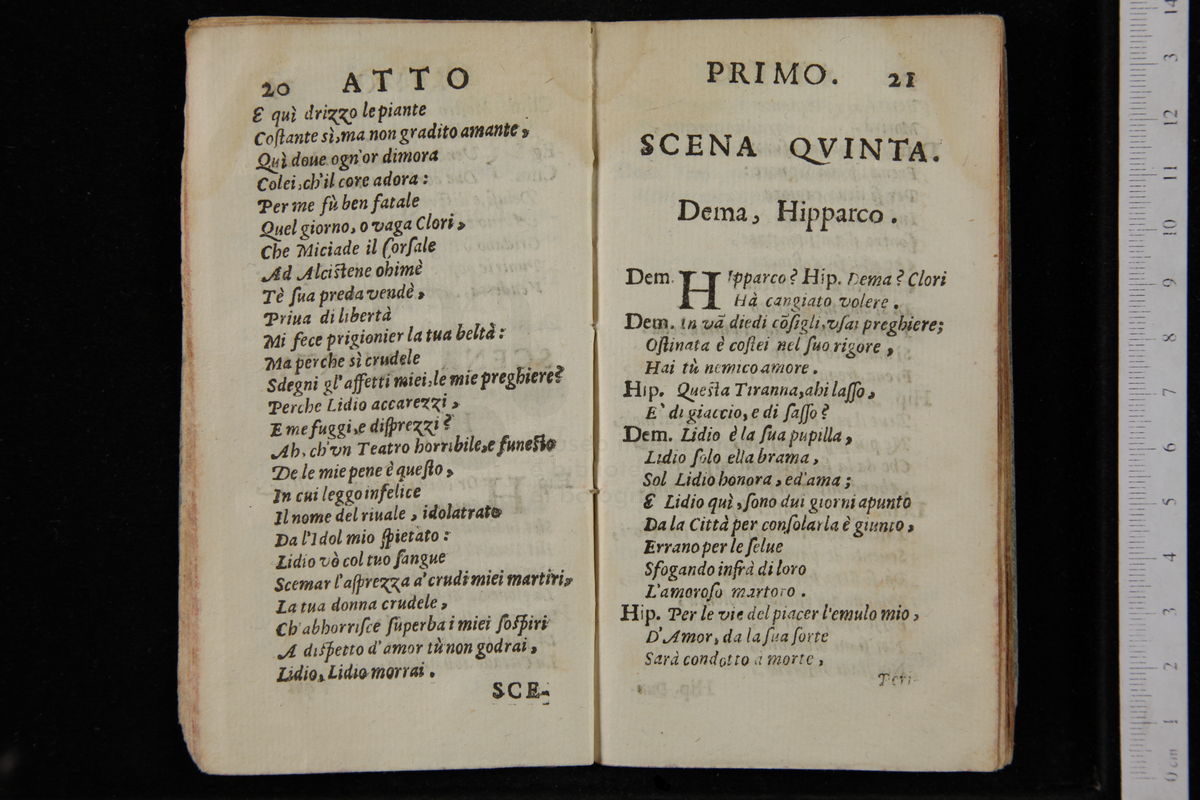 20 ATTO
E quì drizzo le piante
Coſtante sì, ma non gradito amante,
Quì doue ogn'or dimora
Colei, ch'il core adora:
Per me fù ben fatale
Quel giorno, o vaga Clori,
Che Miciade il Corſale
Ad Alciſtene ohimè
Tè ſua preda vendè,
Priua di libertà
Mi fece prigionier la tua beltà:
Ma perche sì crudele
Sdegni gl'affetti miei, le mie preghiere?
Perche Lidio accarezzi,
E me fuggi, e diſprezzi?
Ah, ch'vn Teatro horribile, e funeſto
De le mie pene è queſto,
In cui leggo infelice
Il nome del riuale, idolatrato
Da l'Idol mio ſpietato:
Lidio vò col tuo ſangue
Scemar l'aſprezza a' crudi miei martiri,
La tua donna crudele,
Ch'abhorriſce ſuperba i miei ſoſpiri
A diſpetto d'amor tù non godrai,
Lidio, Lidio morrai.
SCE-
PRIMO. 21
SCENA QVINTA.
Dema, Hipparco.
Dem. HIpparco? Hip. Dema? Clori
Hà cangiato volere.
Dem. In vā diedi cōſigli, vſai preghiere;
Oſtinata è coſtei nel ſuo rigore,
Hai tù nemico amore.
Hip. Queſta Tiranna, ahi laſſo,
E' di giaccio, e di ſaſſo?
Dem. Lidio è la ſua pupilla,
Lidio ſolo ella brama,
Sol Lidio honora, ed'ama;
E Lidio quì, ſono dui giorni apunto
Da la Città per conſolarla è giunto,
Errano per le ſelue
Sfogando infrà di loro
L'amoroſo martoro.
Hip. Per le vie del piacer l'emulo mio,
D'Amor, da la ſua ſorte
Sarà condotto a morte,